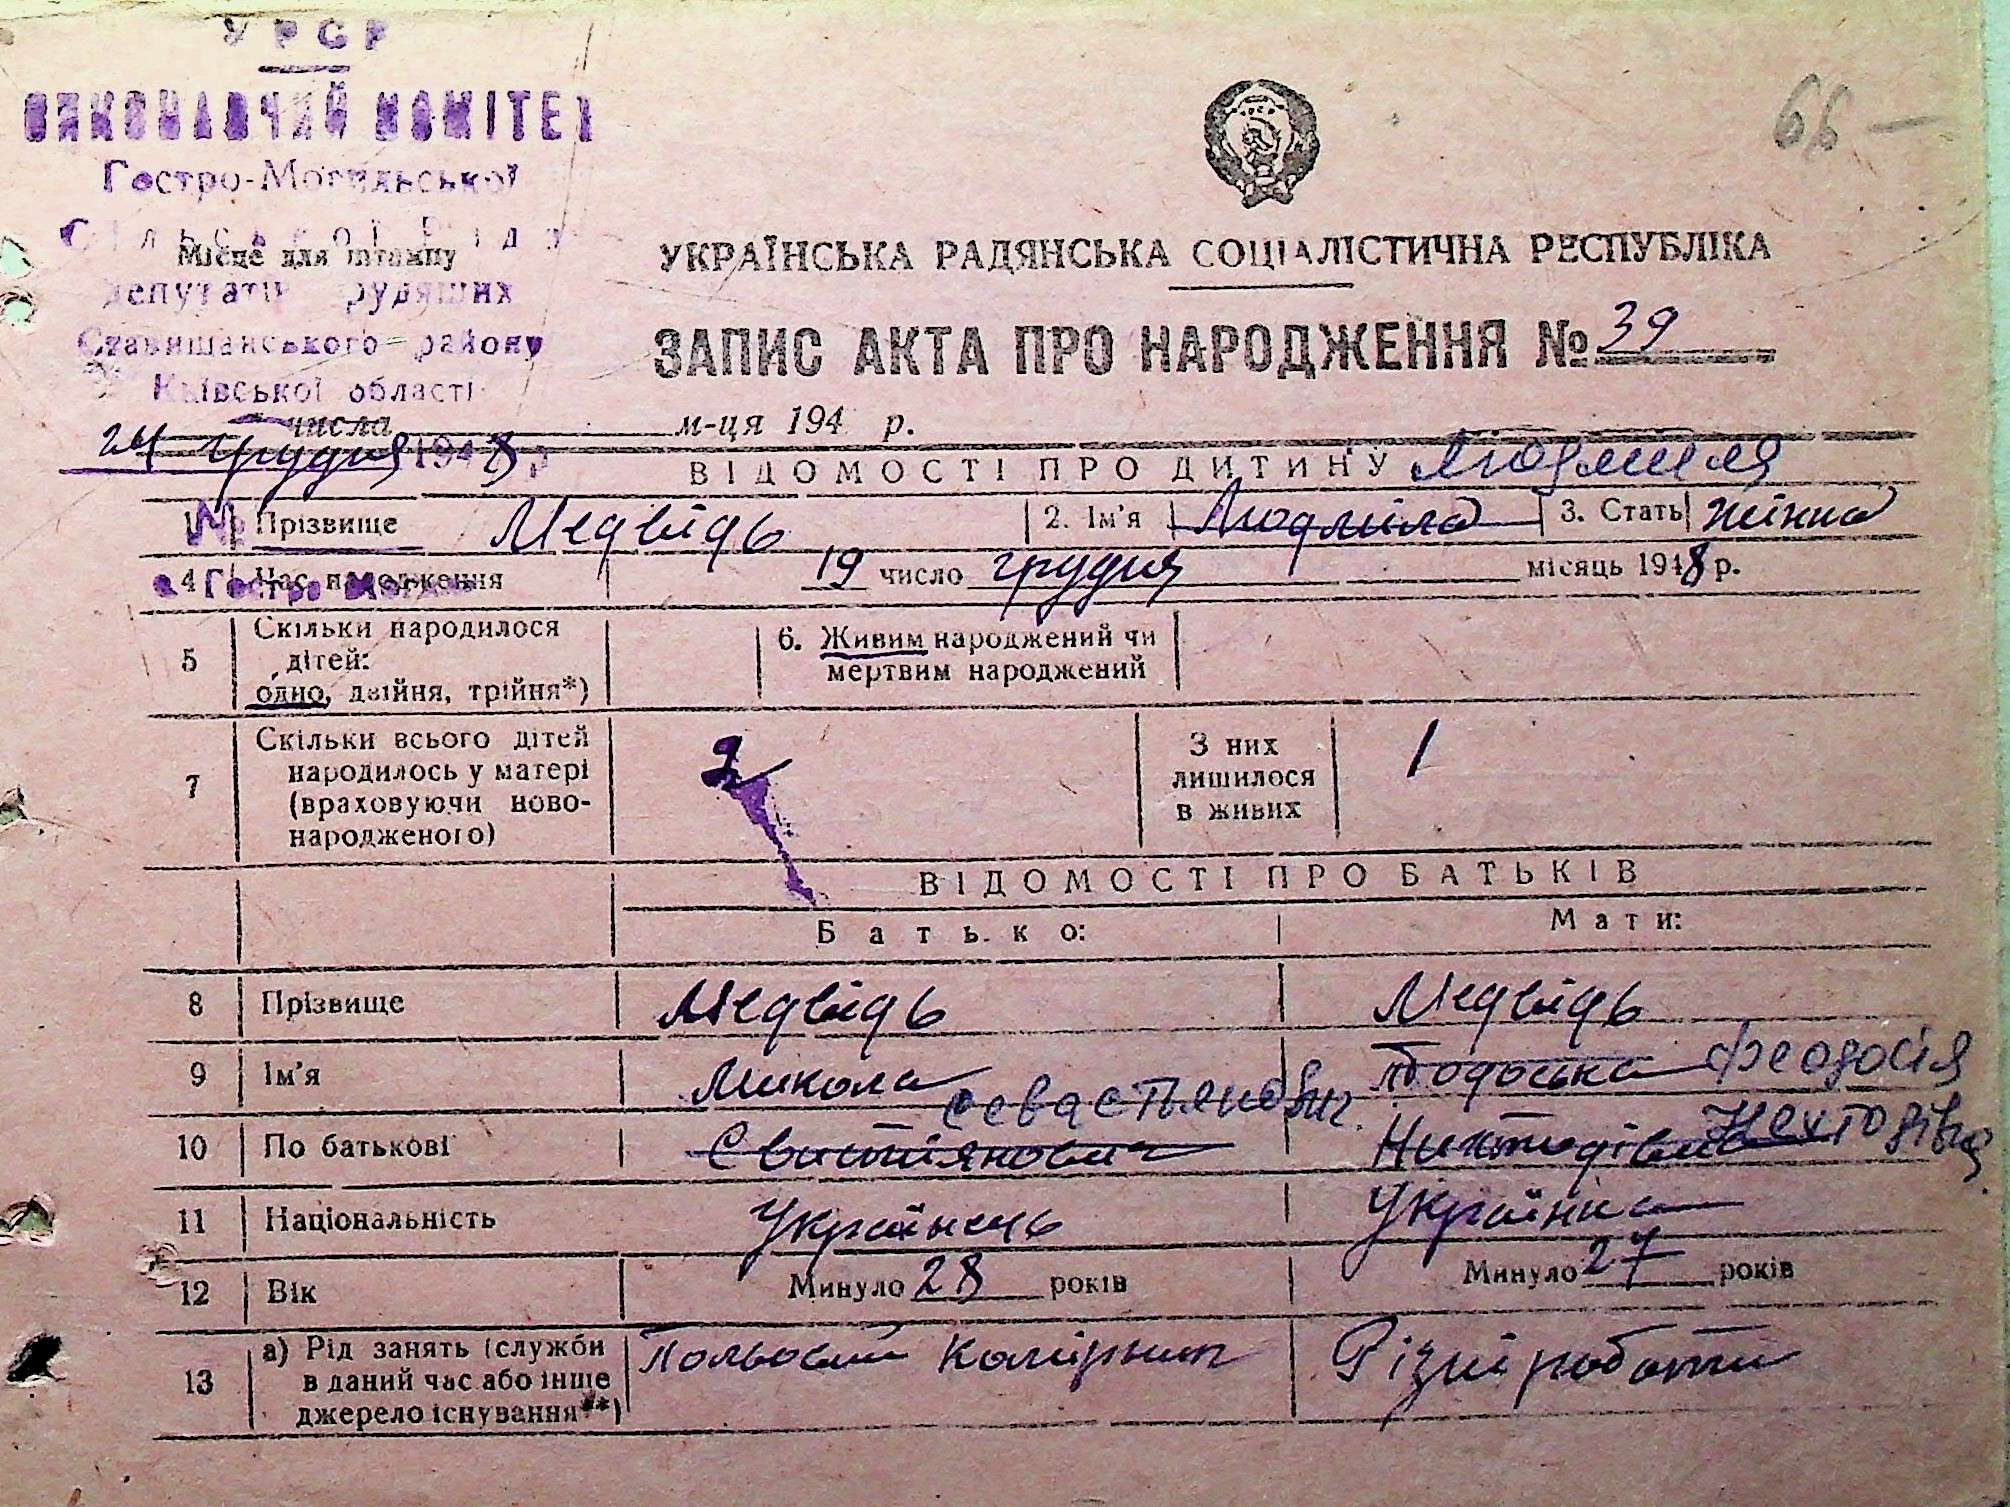 УРСР
ВИКОНАВЧИЙ КОМІТЕТ
Гостро-Могильської
Сільської Ради
Місце для штампу
депутатів трудящих
Ставищанського району
Київської області
66 —
УКРАЇНСЬКА РАДЯНСЬКА СОЦІАЛІСТИЧНА РЕСПУБЛІКА
ЗАПИС АКТА ПРО НАРОДЖЕННЯ № 39
числа м-ця 194 р.
24 грудня 1948 р.
ВІДОМОСТІ ПРО ДИТИНУ Людмиля
1 Прізвище Медвідь 2. Ім'я Людмила 3. Стать жінка
№
с. Гостра Могила
4 Час народження 19 число грудня місяць 1948 р.
5 Скільки народилося дітей: одно, двійня, трійня*)
6. Живим народжений чи мертвим народжений
7 Скільки всього дітей народилось у матері (враховуючи новонародженого) 2 З них лишилося в живих 1
ВІДОМОСТІ ПРО БАТЬКІВ
Батько: Мати:
8 Прізвище Медвідь Медвідь
9 Ім'я Микола Тодоська Феодосія
Севастьянович
10 По батькові Нектодівна
11 Національність Українець Українка
12 Вік Минуло 28 років Минуло 27 років
13 а) Рід занять (служби в даний час або інше джерело існування**) Польовий комірник Різні роботи